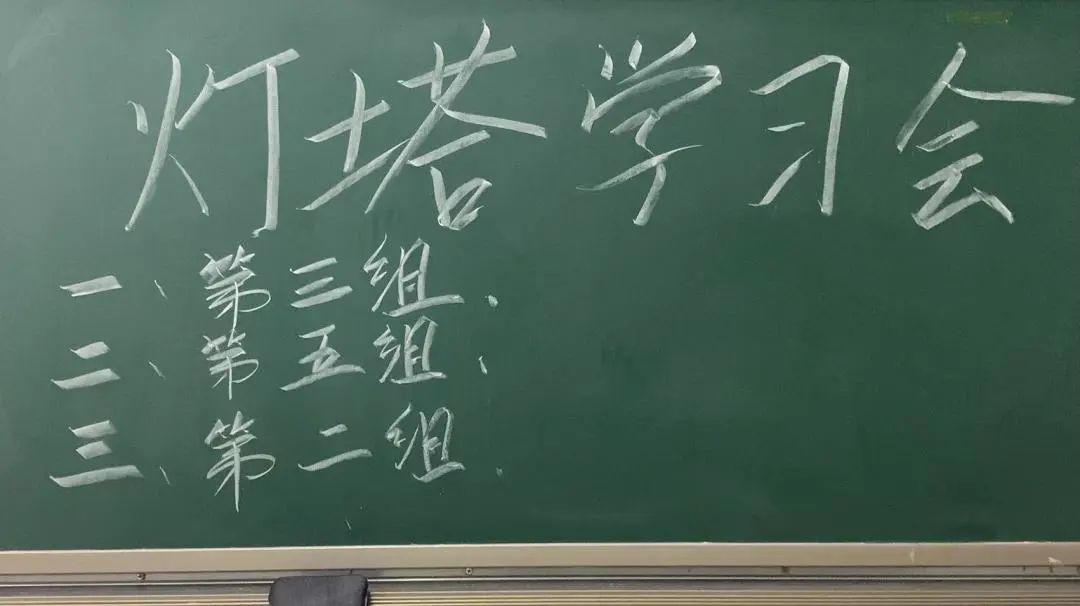 灯塔学习会
一、第三组、
二、第五组、
三、第二组、